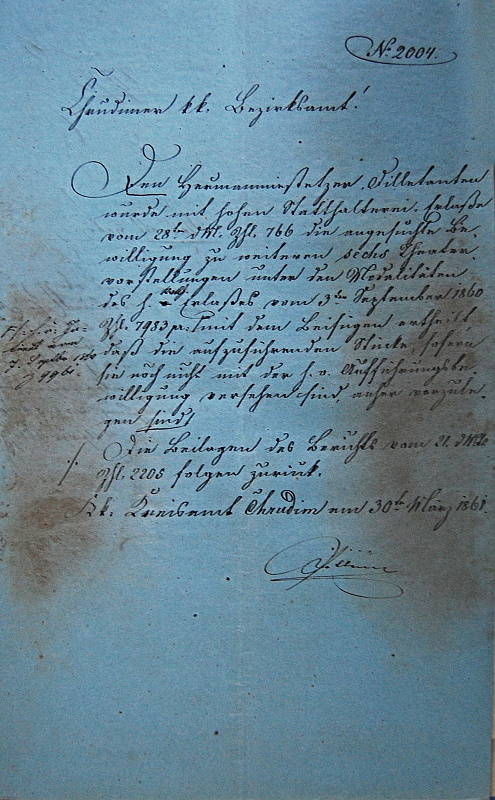 No 2004.
Chrudimer kk. Bezirksamt!
Den Hermannmiestetzer Dilletanten
wurde mit hohen Statthalterei-Erlaße
vom 28ten d Mt. Zhl. 766 die angesuchte Be-
willigung zu weiteren sechs Theater
vorstellungen unter den Modalitäten
des h. Erlaßes vom 3ten September 1860
Zhl. 7983 mit dem Beifügen ertheilt,
daß die aufzuführenden Stücke, sofern
sie noch nicht mit der h. o. Aufführungsbe-
willigung versehen sind, anher vorzule-
gen sind.
Die Beilagen des Berichts vom 21. d Mts
Zhl. 2205 folgen zurück.
Kk. Kreisamt Chrudim am 30ten März 1861.